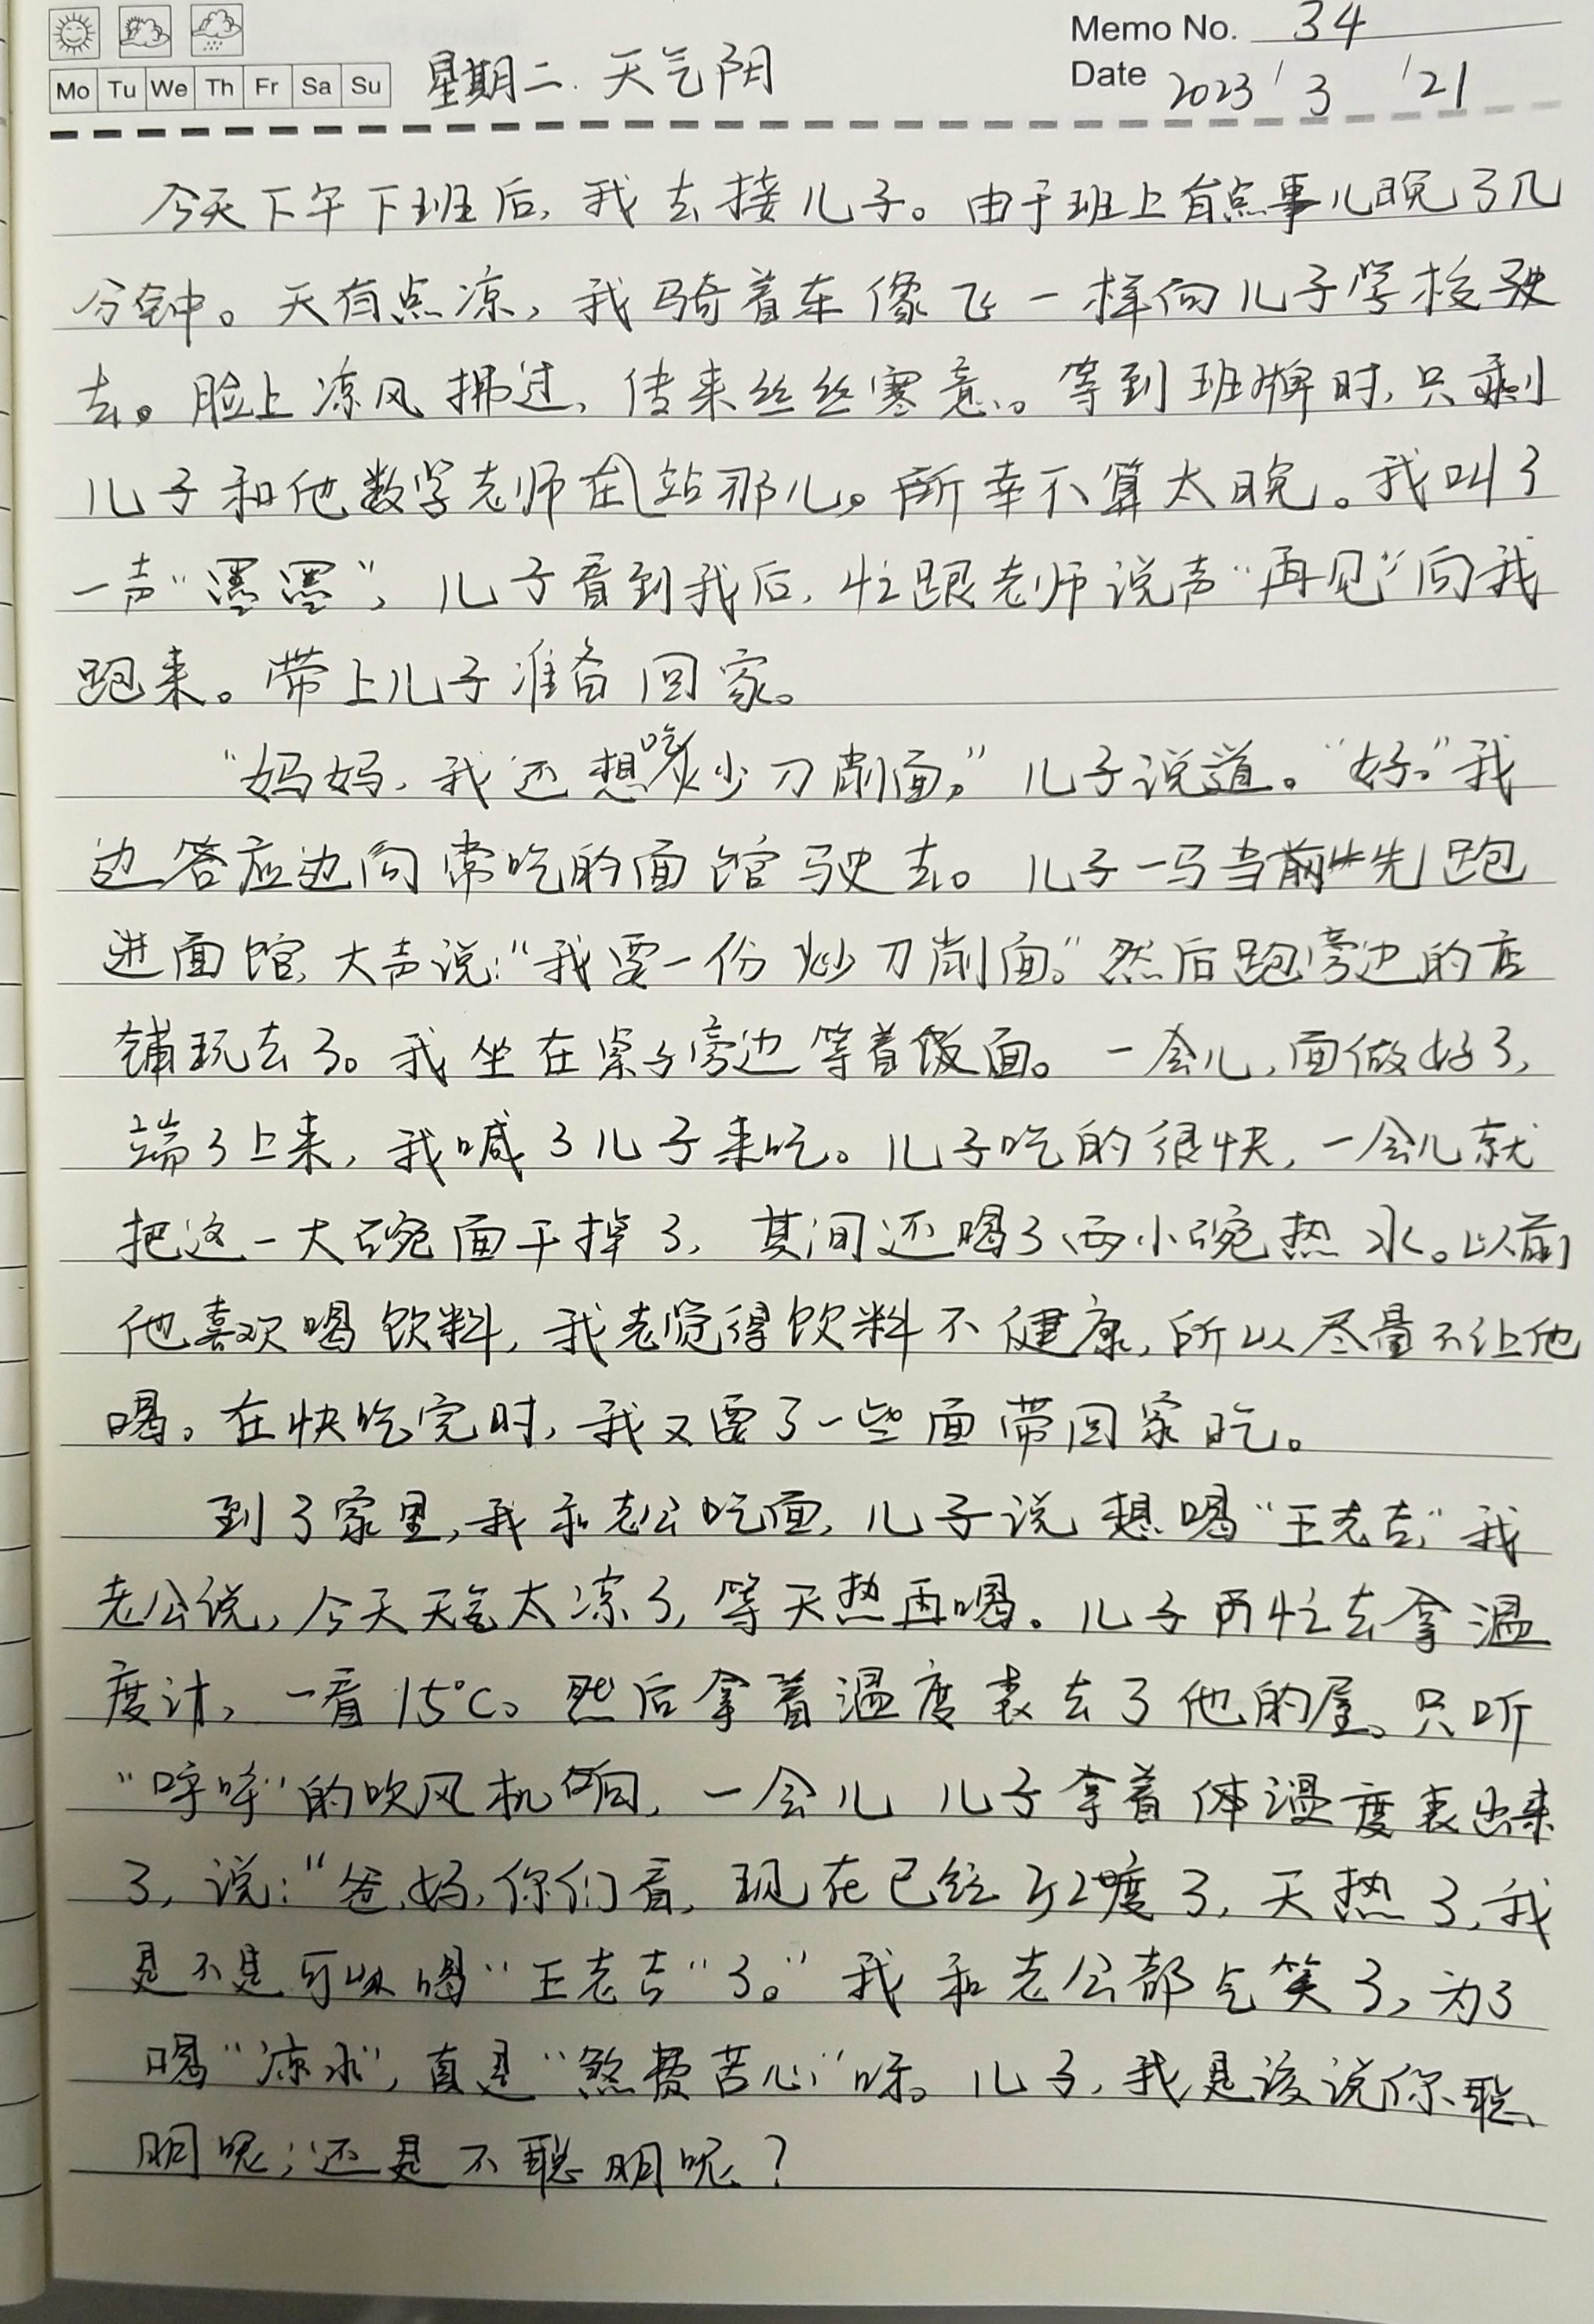 Memo No. 34
Mo Tu We Th Fr Sa Su 星期二. 天气阴
Date 2023 / 3 / 21
今天下午下班后,我去接儿子。由于班上有点事儿晚了几
分钟。天有点凉,我骑着车像飞一样向儿子学校驶
去。脸上凉风拂过,传来丝丝寒意。等到班牌时,只剩
儿子和他数学老师在站那儿。所幸不算太晚。我叫了
一声“墨墨”,儿子看到我后,忙跟老师说声“再见”向我
跑来。带上儿子准备回家。
“妈妈,我还想吃炒刀削面。”儿子说道。“好。”我
边答应边向常吃的面馆驶去。儿子一马当先跑
进面馆,大声说:“我要一份炒刀削面。”然后跑旁边的店
铺玩去了。我坐在桌子旁边等着饭面。一会儿,面做好了,
端了上来,我喊了儿子来吃。儿子吃的很快,一会儿就
把这一大碗面干掉了,其间还喝了两小碗热水。以前
他喜欢喝饮料,我老觉得饮料不健康,所以尽量不让他
喝。在快吃完时,我又要了一些面带回家吃。
到了家里,我和老公吃面,儿子说想喝“王老吉,”我
老公说,今天天气太凉了,等天热再喝。儿子连忙去拿温
度计,一看15℃。然后拿着温度表去了他的屋。只听
“呼呼”的吹风机响,一会儿儿子拿着体温度表出来
了,说:“爸,妈,你们看,现在已经32度了,天热了,我
是不是可以喝“王老吉”了。”我和老公都乞笑了,为了
喝“凉水”,真是“煞费苦心”呀。儿子,我是该说你聪
明呢;还是不聪明呢?